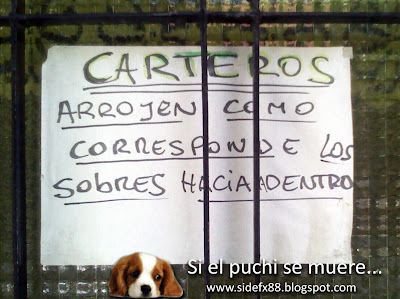 CARTEROS
ARROJEN COMO
CORRESPONDE LOS
SOBRES HACIA ADENTRO
Si el puchi se muere...
www.sidefx88.blogspot.com